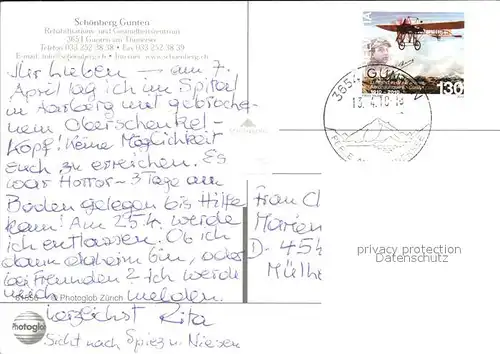 Schönberg Gunten
Rehabilitations- und Gesundheitszentrum
3654 Gunten am Thunersee
Telefon 033 252 38 38 • Fax 033 252 38 39
E-mail: info@schoenberg.ch • Internet: www.schoenberg.ch
Ihr Lieben – am 7.
April lag ich im Spital
in Aarberg mit gebroche-
nem Oberschenkel-
Kopf! Keine Möglichkeit
euch zu erreichen. Es
war Horror – 3 Tage am
Boden gelegen bis Hilfe
kam! Am 25.4. werde
ich entlassen. Ob ich
dann daheim bin, oder
bei Freunden? ich werde
mich melden.
Herzlichst Rita
Sicht nach Spiez u. Niesen
© Photoglob Zürich
Photoglob
130
1910 - 2010
3654 GUNTEN
13.4.10.18
Frau
Marien
D- 454
Mülhe
privacy protection
Datenschutz